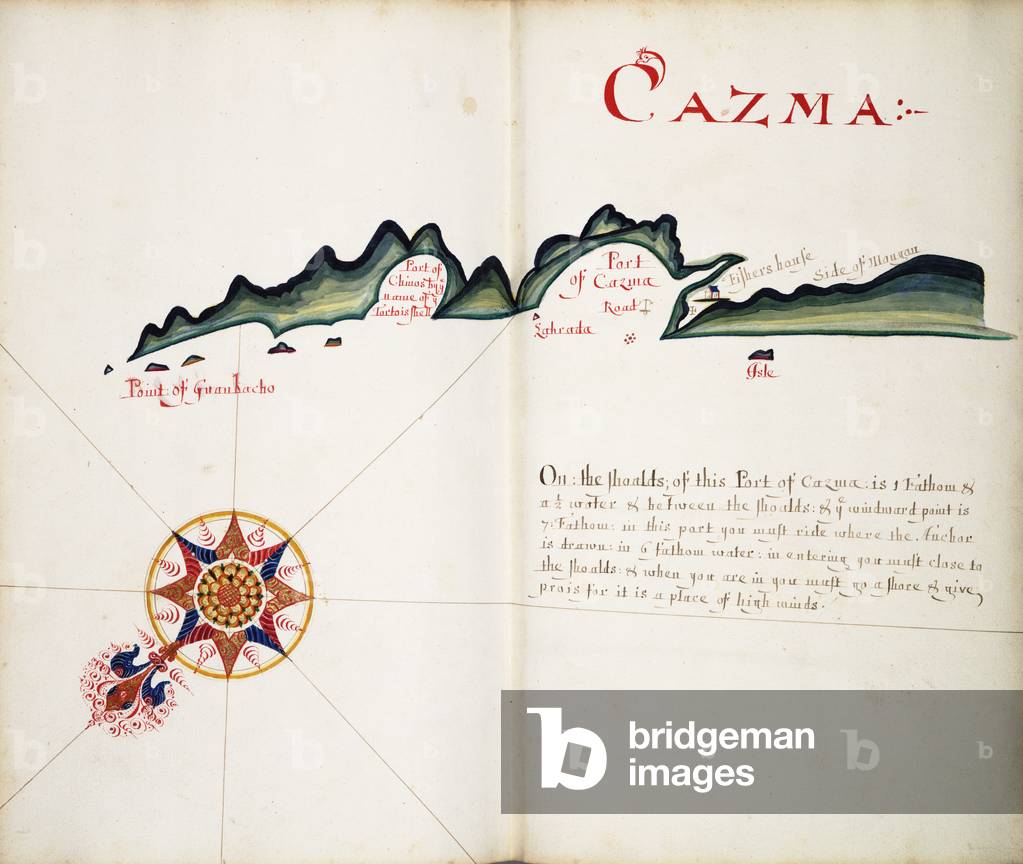 CAZMA
Port of
Chinos by yᵉ
name of yᵉ
Tortois shell
Port
of Cazma
Road
Lahrada
Fishers house
Side of Mongon
Isle
Point of Guanbacho
On : the shoalds; of this Port of Cazma : is 1 Fathom &
a ½ water & between the shoalds : & yᵉ windward point is
7 : Fathom : in this port you must ride where the Anchor
is drawn : in 6 fathom water : in entering you must close to
the shoalds : & when you are in you must go a shore & give
prois for it is a place of high winds .
bridgeman
images